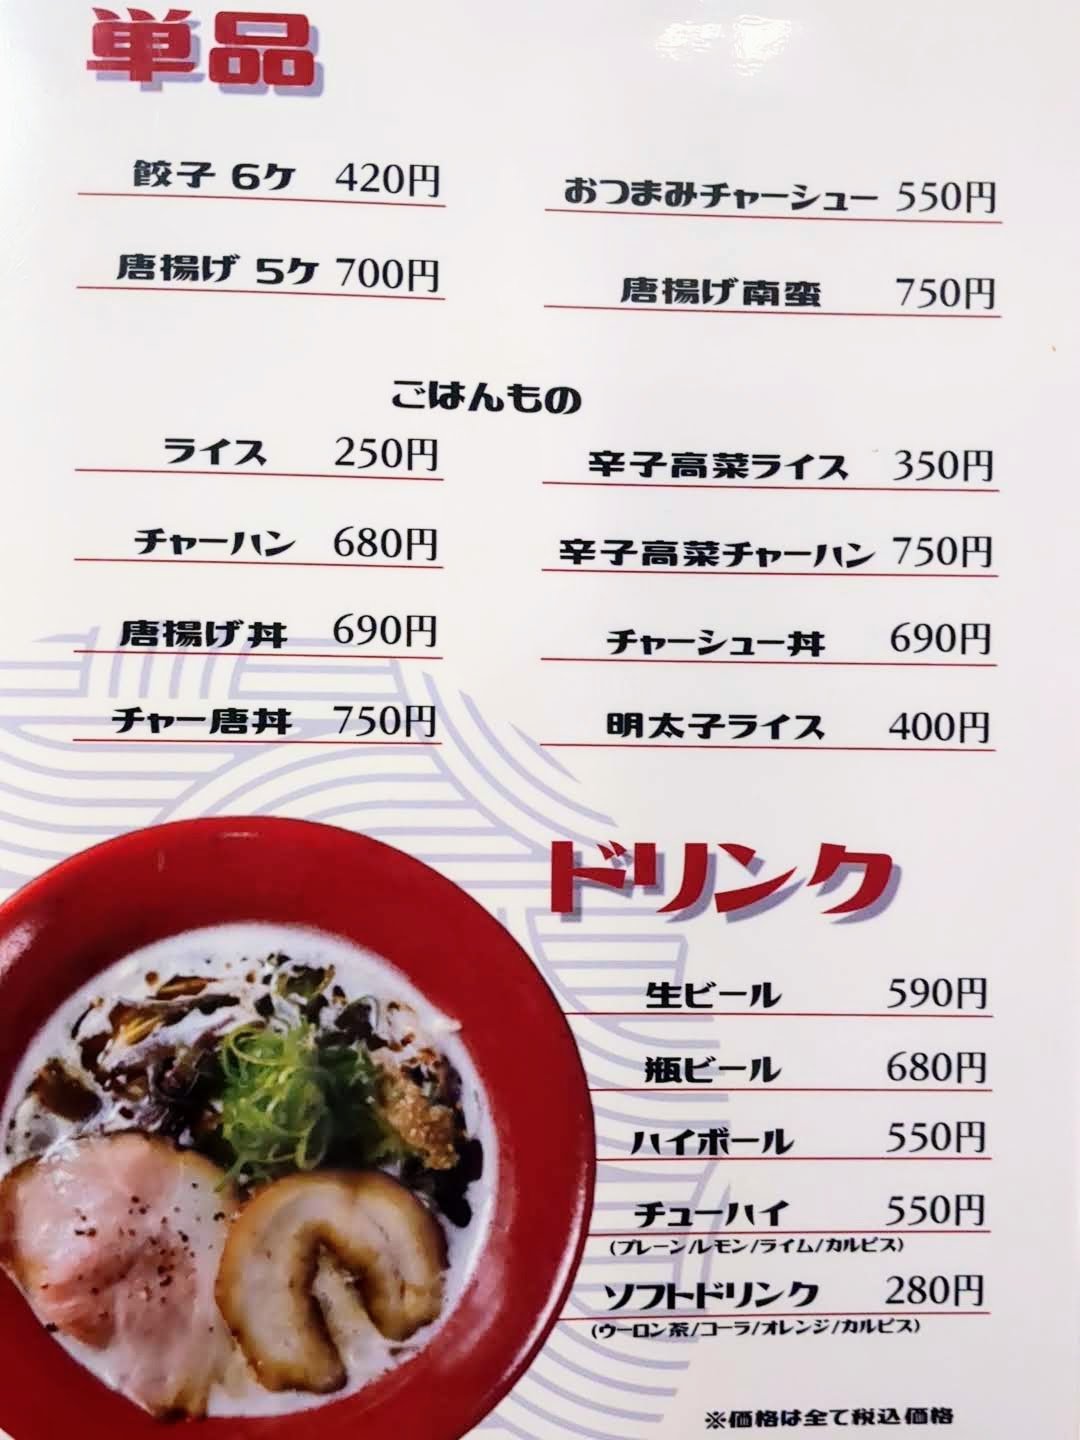 単品
餃子 6ケ 420円
おつまみチャーシュー 550円
唐揚げ 5ケ 700円
唐揚げ南蛮 750円
ごはんもの
ライス 250円
辛子高菜ライス 350円
チャーハン 680円
辛子高菜チャーハン 750円
唐揚げ丼 690円
チャーシュー丼 690円
チャー唐丼 750円
明太子ライス 400円
ドリンク
生ビール 590円
瓶ビール 680円
ハイボール 550円
チューハイ 550円
(プレーン/レモン/ライム/カルピス)
ソフトドリンク 280円
(ウーロン茶/コーラ/オレンジ/カルピス)
※価格は全て税込価格